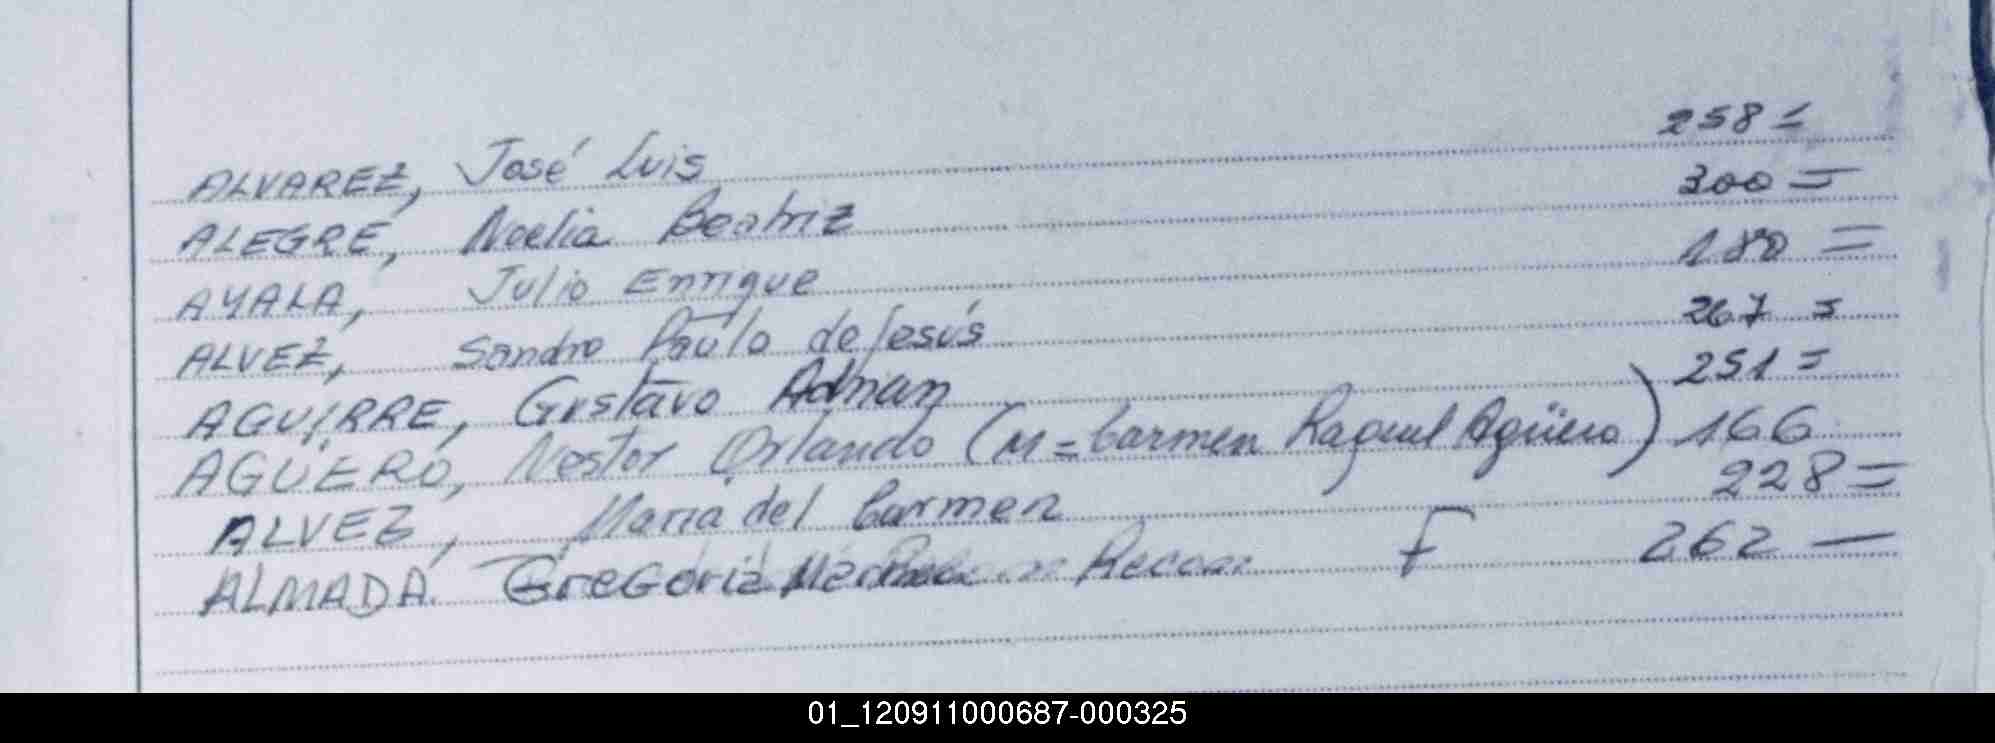 ALVAREZ, José Luis 258 =
ALEGRE, Noelia Beatriz 300 =
AYALA, Julio Enrique 180 =
ALVEZ, Sandro Paulo de Jesús 267 =
AGUIRRE, Gustavo Adrian 251 =
AGÜERO, Nestor Orlando (M = Carmen Raquel Agüero) 166
ALVEZ, Maria del Carmen 228 =
ALMADA. Gregoria F 262 —
01_120911000687-000325